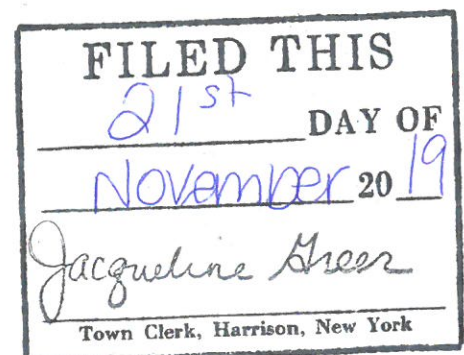 FILED THIS
21st DAY OF
November 20 19
Jacqueline Greer
Town Clerk, Harrison, New York